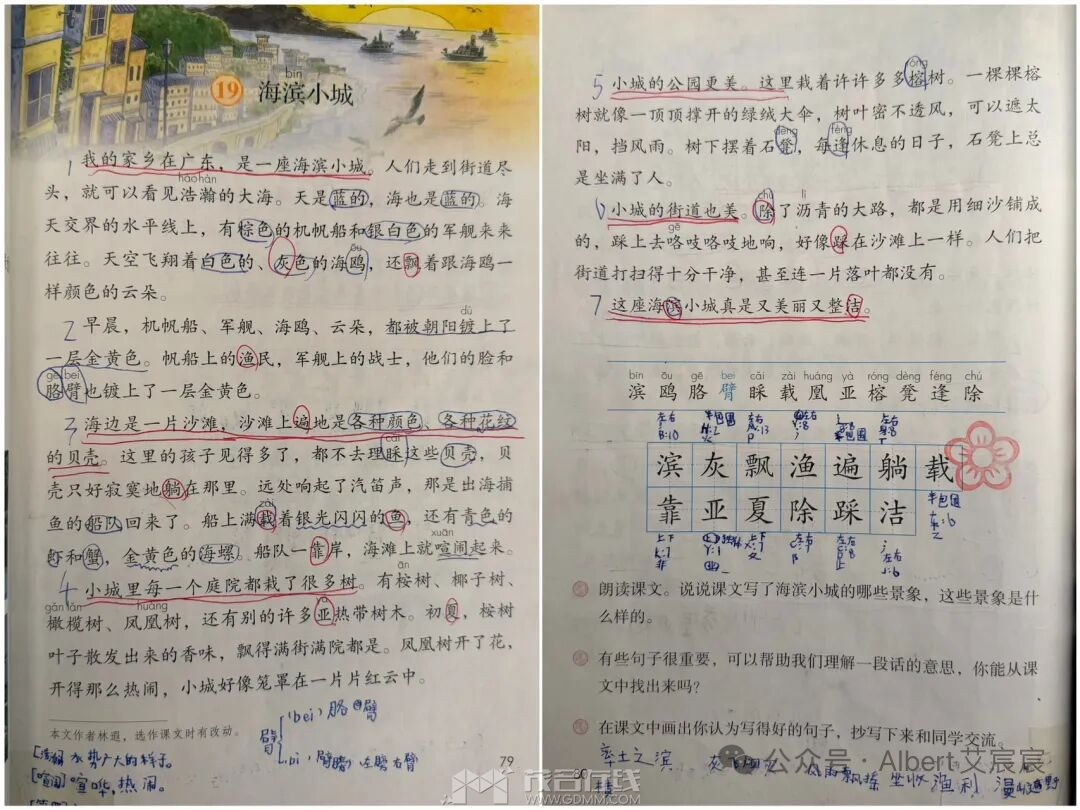 bīn
19 海滨小城
1 我的家乡在广东,是一座海滨小城。人们走到街道尽
hào hàn
头,就可以看见浩瀚的大海。天是蓝的,海也是蓝的。海
天交界的水平线上,有棕色的机帆船和银白色的军舰来来
ōu
往往。天空飞翔着白色的、灰色的海鸥,还飘着跟海鸥一
样颜色的云朵。
dù
2 早晨,机帆船、军舰、海鸥、云朵,都被朝阳镀上了
一层金黄色。帆船上的渔民,军舰上的战士,他们的脸和
gē bei
胳臂也镀上了一层金黄色。
3 海边是一片沙滩,沙滩上遍地是各种颜色、各种花纹
cǎi
的贝壳。这里的孩子见得多了,都不去理睬这些贝壳,贝
壳只好寂寞地躺在那里。远处响起了汽笛声,那是出海捕
zài
鱼的船队回来了。船上满载着银光闪闪的鱼,还有青色的
xuān
虾和蟹,金黄色的海螺。船队一靠岸,海滩上就喧闹起来。
4 小城里每一个庭院都栽了很多树。有桉树、椰子树、
gǎn lǎn huáng
橄榄树、凤凰树,还有别的许多亚热带树木。初夏,桉树
叶子散发出来的香味,飘得满街满院都是。凤凰树开了花,
开得那么热闹,小城好像笼罩在一片片红云中。
本文作者林遐,选作课文时有改动。
[浩瀚]水势广大的样子。
[喧闹]喧哗,热闹。
臂
(bei) 胳臂
bì
左臂右臂
79
róng
5 小城的公园更美。这里栽着许许多多榕树。一棵棵榕
树就像一顶顶撑开的绿绒大伞,树叶密不透风,可以遮太
dèng féng
阳,挡风雨。树下摆着石凳,每逢休息的日子,石凳上总
是坐满了人。
chú lì
6 小城的街道也美。除了沥青的大路,都是用细沙铺成
gē
的,踩上去咯吱咯吱地响,好像踩在沙滩上一样。人们把
街道打扫得十分干净,甚至连一片落叶都没有。
7 这座海滨小城真是又美丽又整洁。
bīn ōu gē bei cǎi zài huáng yà róng dèng féng chú
滨 鸥 胳 臂 睬 载 凰 亚 榕 凳 逢 除
滨 灰 飘 渔 遍 躺 载
靠 亚 夏 除 踩 洁
朗读课文。说说课文写了海滨小城的哪些景象,这些景象是什
么样的。
有些句子很重要,可以帮助我们理解一段话的意思,你能从课
文中找出来吗?
在课文中画出你认为写得好的句子,抄写下来和同学交流。
率土之滨
坐收渔利
80
公众号·Albert艾宸宸
茂名在线
WWW.GDMM.COM